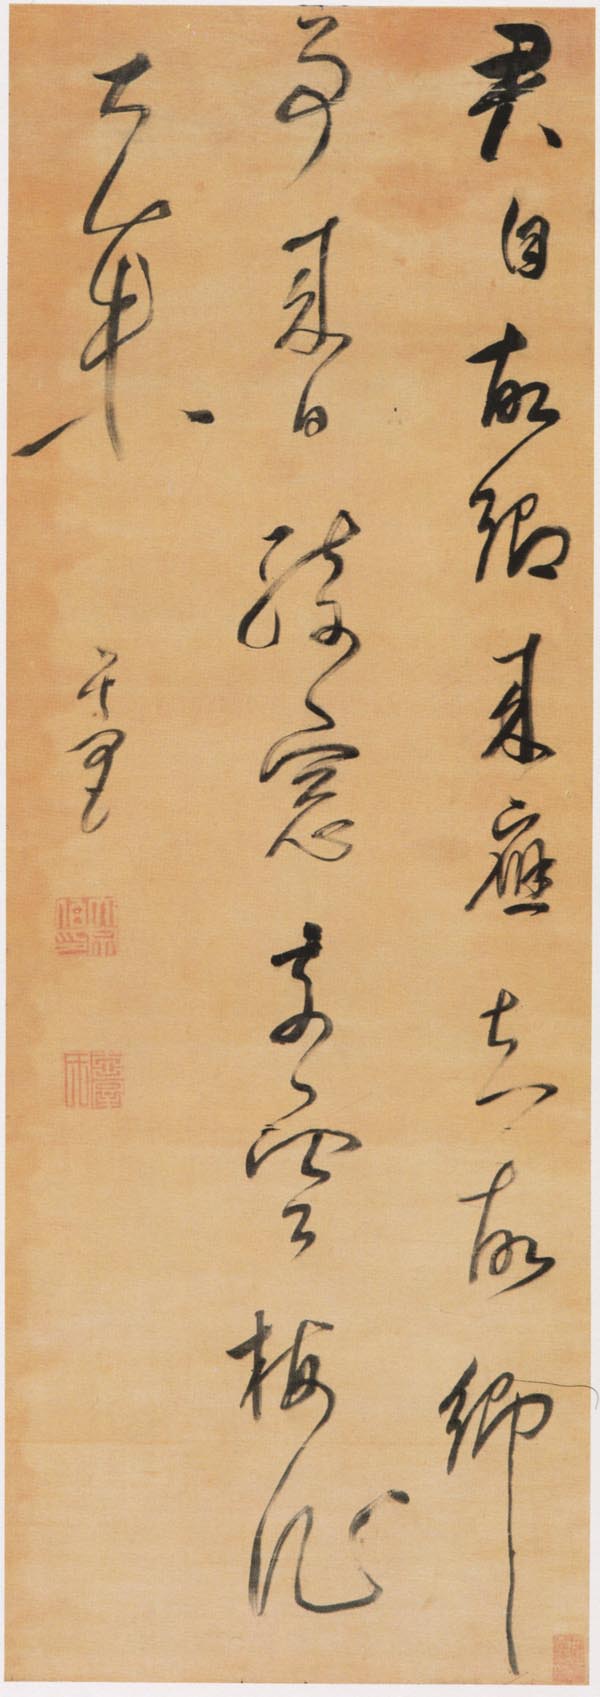 君自故鄉來應知故鄉
事來日綺窗前寒梅著
花未